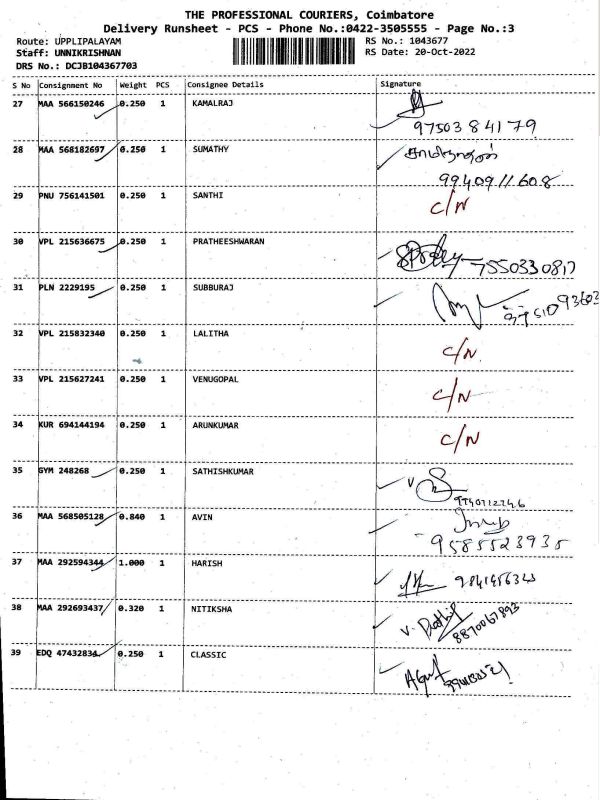 THE PROFESSIONAL COURIERS, Coimbatore
Delivery Runsheet - PCS - Phone No.:0422-3505555 - Page No.:3
Route: UPPLIPALAYAM RS No.: 1043677
Staff: UNNIKRISHNAN RS Date: 20-Oct-2022
DRS No.: DCJB104367703
S No Consignment No Weight PCS Consignee Details Signature
27 MAA 566150246 0.250 1 KAMALRAJ
9750384179
28 MAA 568182697 0.250 1 SUMATHY
9940911608
29 PNU 756141501 0.250 1 SANTHI C/N
30 VPL 215636675 0.250 1 PRATHEESHWARAN
7550330817
31 PLN 2229195 0.250 1 SUBBURAJ
32 VPL 215832340 0.250 1 LALITHA C/N
33 VPL 215627241 0.250 1 VENUGOPAL C/N
34 KUR 694144194 0.250 1 ARUNKUMAR C/N
35 GYM 248268 0.250 1 SATHISHKUMAR
36 MAA 568505128 0.840 1 AVIN
9585523935
37 MAA 292594344 1.000 1 HARISH
38 MAA 292693437 0.320 1 NITIKSHA
8870067893
39 EDQ 47432834 0.250 1 CLASSIC